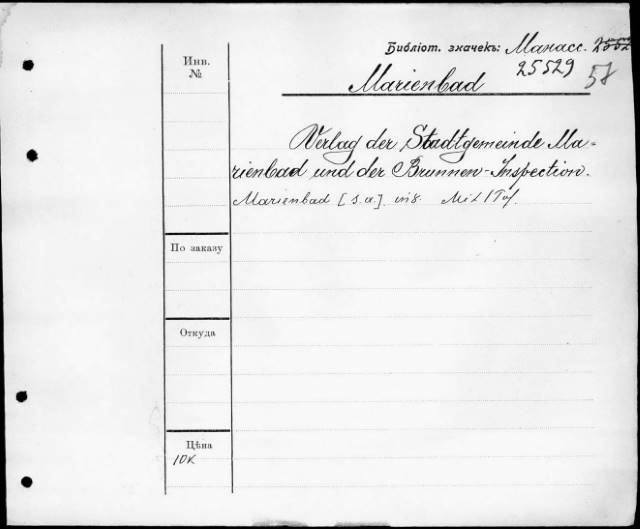 Библіот. значекъ: Манасс. 2552
25529 58
Marienbad
Инв.
№
Verlag der Stadtgemeinde Ma-
rienbad und der Brunnen-Inspection.
Marienbad [s.a.] in 8. Mit 1 Taf.
По заказу
Откуда
Цѣна
10к